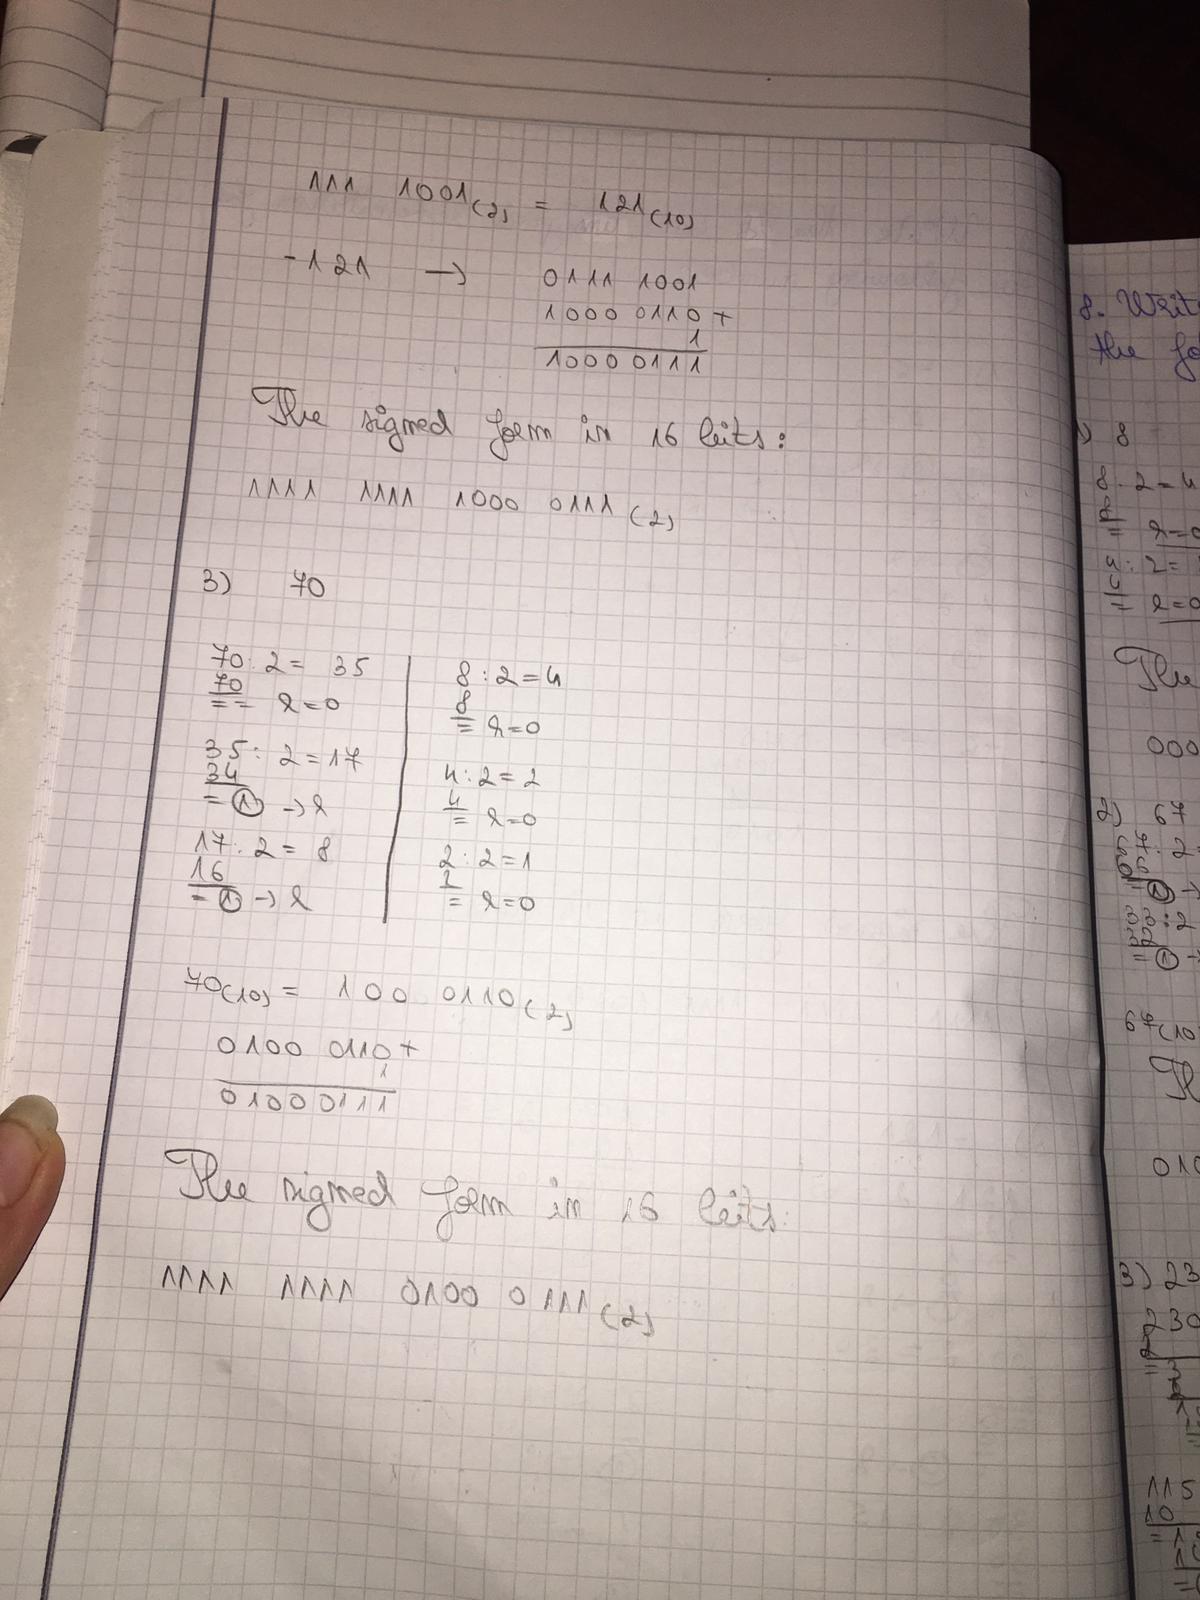 111 1001(2) = 121(10)
-121 → 0111 1001
1000 0110 +
1
1000 0111
The signed form in 16 bits:
1111 1111 1000 0111 (2)
3) 70
70 : 2 = 35
70
== r=0
35 : 2 = 17
34
= 1 → r
17 : 2 = 8
16
= 1 → r
8 : 2 = 4
8
= r=0
4 : 2 = 2
4
= r=0
2 : 2 = 1
2
= r=0
70(10) = 100 0110(2)
0100 0110 +
1
0100 0111
The signed form in 16 bits:
1111 1111 0100 0111 (2)
8. Writ
the fo
8
8 : 2 = 4
8
= r=0
4 : 2 =
4
= r=0
The
000
2) 67
67 : 2
33 : 2
67(10
Th
010
3) 23
230
115
10